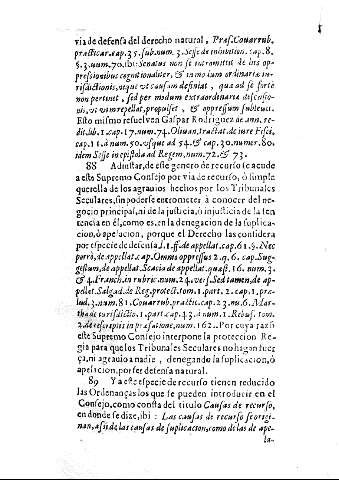 via de defensa del derecho natural, Præs. Couarrub.
practicar. cap. 35. sub num. 3. Sesse de inhibition. cap. 8.
§. 3. num. 70. ibi: Senatus non se intromittit de his op-
pressionibus cognitionaliter, & in modum ordinariæ iu-
risdictionis, neque vt causam definiat, quæ ad se forte
non pertinet, sed per modum extraordinariæ defensio-
nis, vt vim repellat, propulset, & oppressum subleuet.
Esto mismo resuelven Gaspar Rodriguez de ann. re-
dit. lib. 1. cap. 17. num. 74. Oliuan, tractat. de iure Fisci,
cap. 11. à num. 50. vsque ad 54. & cap. 30. numer. 80.
idem Sesse in epistola ad Regem, num. 72. & 73.
88 Admitar, de este genero de recurso se acude
a este Supremo Consejo por via de recurso, ò simple
querella de los agrauios hechos por los Tribunales
Seculares, sin poderse entrometer à conocer del ne-
gocio principal, ni de la justicia, ò injusticia de la sen
tencia en él, como es, en la denegacion de la suplica-
cion, ò apelacion, porque el Derecho las considera
por especie de defensa. l. 1. ff. de appellat. cap. 61. §. Nec
porrò, de appellat. cap. Omnis oppressus 2. q. 6. cap. Sug-
gestum, de appellat. Scacia de appellat. quæst. 16. num. 3.
& 4. Franch. in rubric. num. 24. vers. Sed tamen, de ap-
pellat. Salgad. de Reg. protect. tom. 1. part. 2. cap. 1. præ-
lud. 3. num. 81. Couarrub. practic. cap. 23. nu. 6. Mar-
tha de iurisdictio. 1. part. cap. 43. à num. 1. Rebuf. tom.
2. de rescriptis in præfatione, num. 162. Por cuya razõ
este Supremo Consejo interpone la proteccion Re-
gia para que los Tribunales Seculares no hagan fuer
ça, ni agrauio a nadie, denegando la suplicacion, ò
apelacion, por ser defensa natural.
89 Y a este especie de recurso tienen reducido
las Ordenanças los que se pueden introducir en el
Consejo, como consta del titulo Causas de recurso,
en donde se dize, ibi: Las causas de recurso se origi-
nan, assi de las causas de suplicacion, como de las de ape-
la-